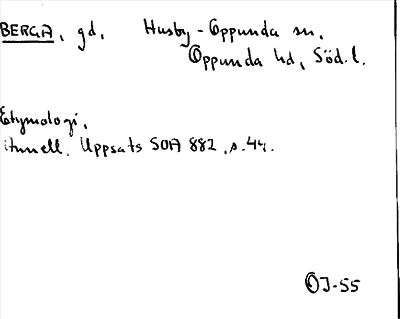 BERGA, gd, Husby-Oppunda sn,
Oppunda hd, Söd.l.
Etymologi,
Uppsats SOA 882, s.44.
OJ-55